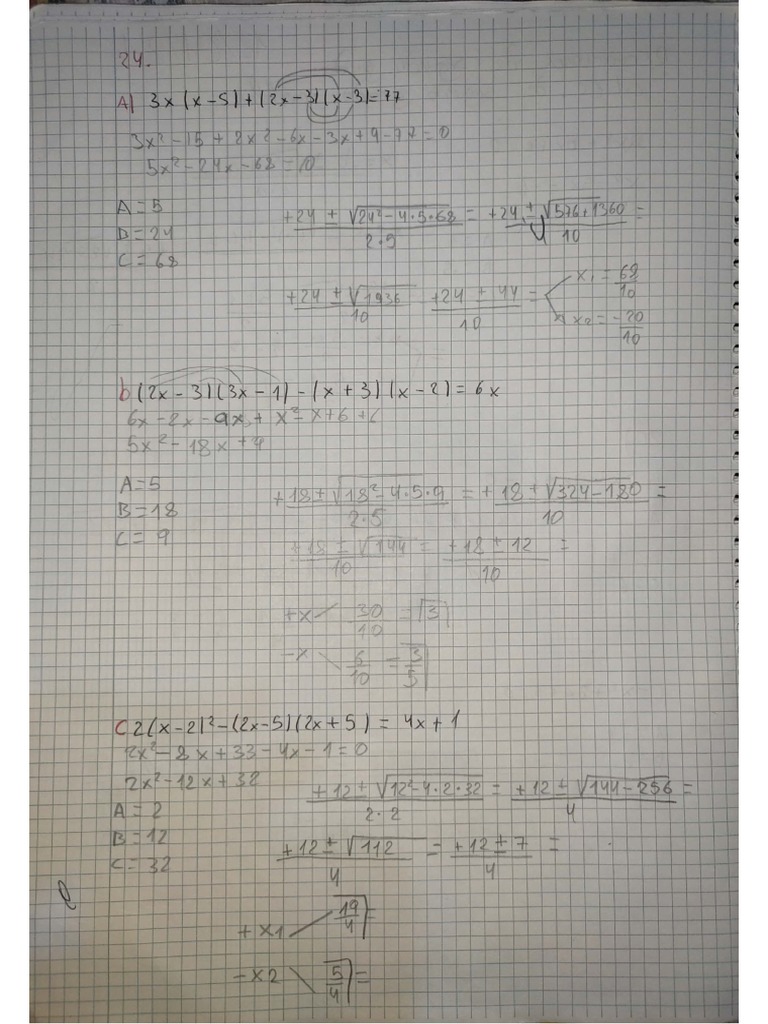 24.
A) 3x (x-5) + (2x-3)(x-3)=77
3x² - 15 + 2x² - 6x - 3x + 9 - 77 = 0
5x² - 24x - 68 = 0
A = 5
B = 24
C = 68
+24 ± √24² - 4·5·68 / 2·5 = +24 ± √576+1360 / 10 =
+24 ± √1936 / 10 +24 ± 44 / 10 = x₁ = 68/10
x₂ = -20/10
b (2x - 3)(3x - 1) - (x + 3)(x - 2) = 6x
6x - 2x - 9x + x² - x + 6 +
5x² - 18x + 9
A = 5
B = 18
C = 9
+18 ± √18² - 4·5·9 / 2·5 = +18 ± √324 - 180 / 10 =
+18 ± √144 / 10 = +18 ± 12 / 10 =
+x 30/10 = 3
-x 6/10 = 3/5
C 2(x-2)² - (2x-5)(2x+5) = 4x + 1
2x² - 8x + 33 - 4x - 1 = 0
2x² - 12x + 32
A = 2
B = 12
C = 32
+12 ± √12² - 4·2·32 / 2·2 = +12 ± √144 - 256 / 4 =
+12 ± √112 / 4 = +12 ± 7 / 4 =
+x1 19/4 =
-x2 5/4 =